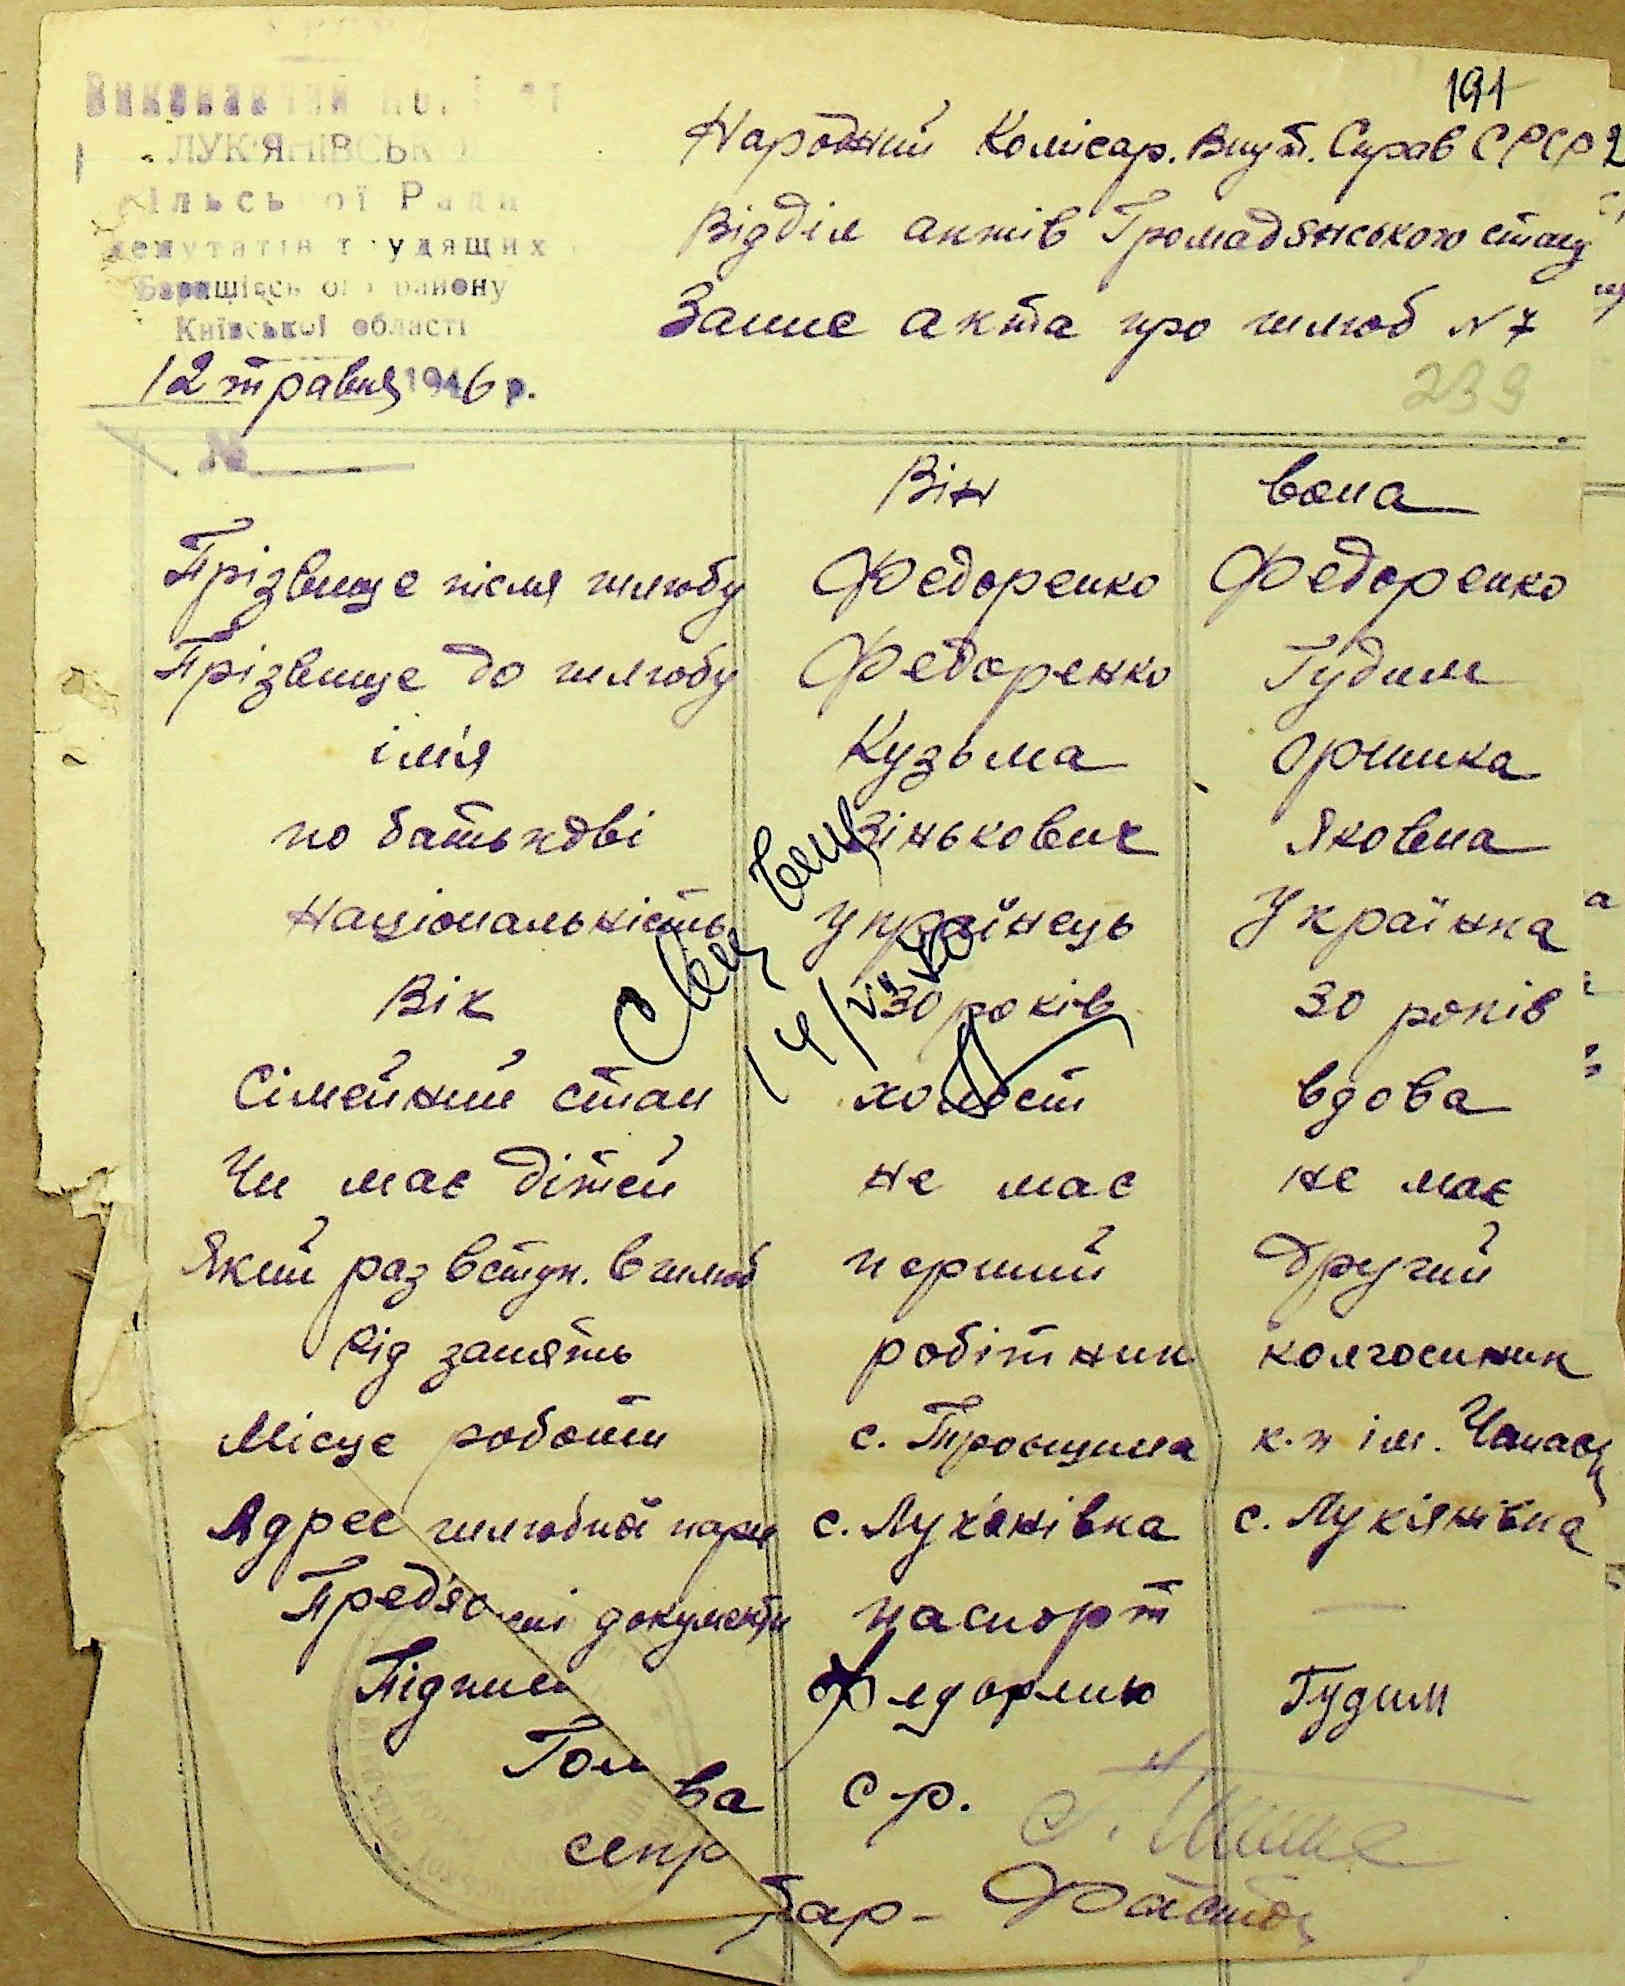 191
Виконавчий
ЛУК'ЯНІВСЬКО
сільської Ради
депутатів трудящих
Баришівського району
Київської області
12 травня 1946 р.
№
Народний Комісар. Внут. Справ СРСР
Відділ актів Громадянського стану
Запис акта про шлюб N 7
239
Він вона
Прізвище після шлюбу Федоренко Федоренко
Прізвище до шлюбу Федоренко Гудим
ім'я Кузьма Оришка
по батькові Зінькович Яковна
Національність українець Українка
Вік 30 років 30 років
Сімейний стан холост вдова
Чи має дітей не має не має
Який раз вступ. в шлюб перший Другий
Рід занять робітник колгоспник
Місце роботи с. Троєщина к-п ім. Чапаєв
Адрес шлюбної пари с. Лук'янівка с. Лукіянівка
Пред'яв ені документи паспорт —
Підпис Гудим
Гол ва с-р.
секр тар -